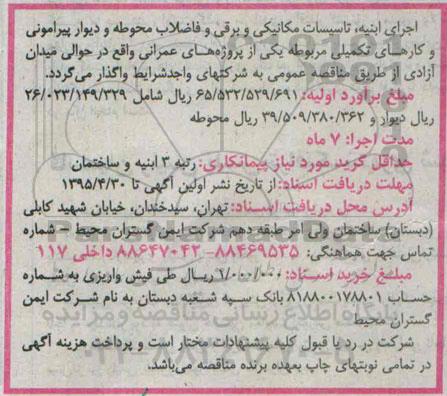 اجرای ابنیه، تاسیسات مکانیکی و برقی و فاضلاب محوطه و دیوار پیرامونی
و کارهای تکمیلی مربوطه یکی از پروژه‌های عمرانی واقع در حوالی میدان
آزادی از طریق مناقصه عمومی به شرکتهای واجدشرایط واگذار می‌گردد.
مبلغ برآورد اولیه: ۶۵/۵۳۲/۵۲۹/۶۹۱ ریال شامل ۲۶/۰۲۳/۱۴۹/۳۲۹
ریال دیوار و ۳۹/۵۰۹/۳۸۰/۳۶۲ ریال محوطه
مدت اجرا: ۷ ماه
حداقل گرید مورد نیاز پیمانکاری: رتبه ۳ ابنیه و ساختمان
مهلت دریافت اسناد: از تاریخ نشر اولین آگهی تا ۱۳۹۵/۴/۳۰
آدرس محل دریافت اسناد: تهران، سیدخندان، خیابان شهید کابلی
(دبستان) ساختمان ولی امر طبقه دهم شرکت ایمن گستران محیط - شماره
تماس جهت هماهنگی: ۸۸۴۶۹۵۳۵-۸۸۶۴۷۰۴۲ داخلی ۱۱۷
مبلغ خرید اسناد: ۱/۰۰۰/۰۰۰ ریال طی فیش واریزی به شماره
حساب ۸۱۸۸۰۰۱۷۸۸۰۱ بانک سپه شعبه دبستان به نام شرکت ایمن
گستران محیط
شرکت در رد یا قبول کلیه پیشنهادات مختار است و پرداخت هزینه آگهی
در تمامی نوبتهای چاپ بعهده برنده مناقصه می‌باشد.